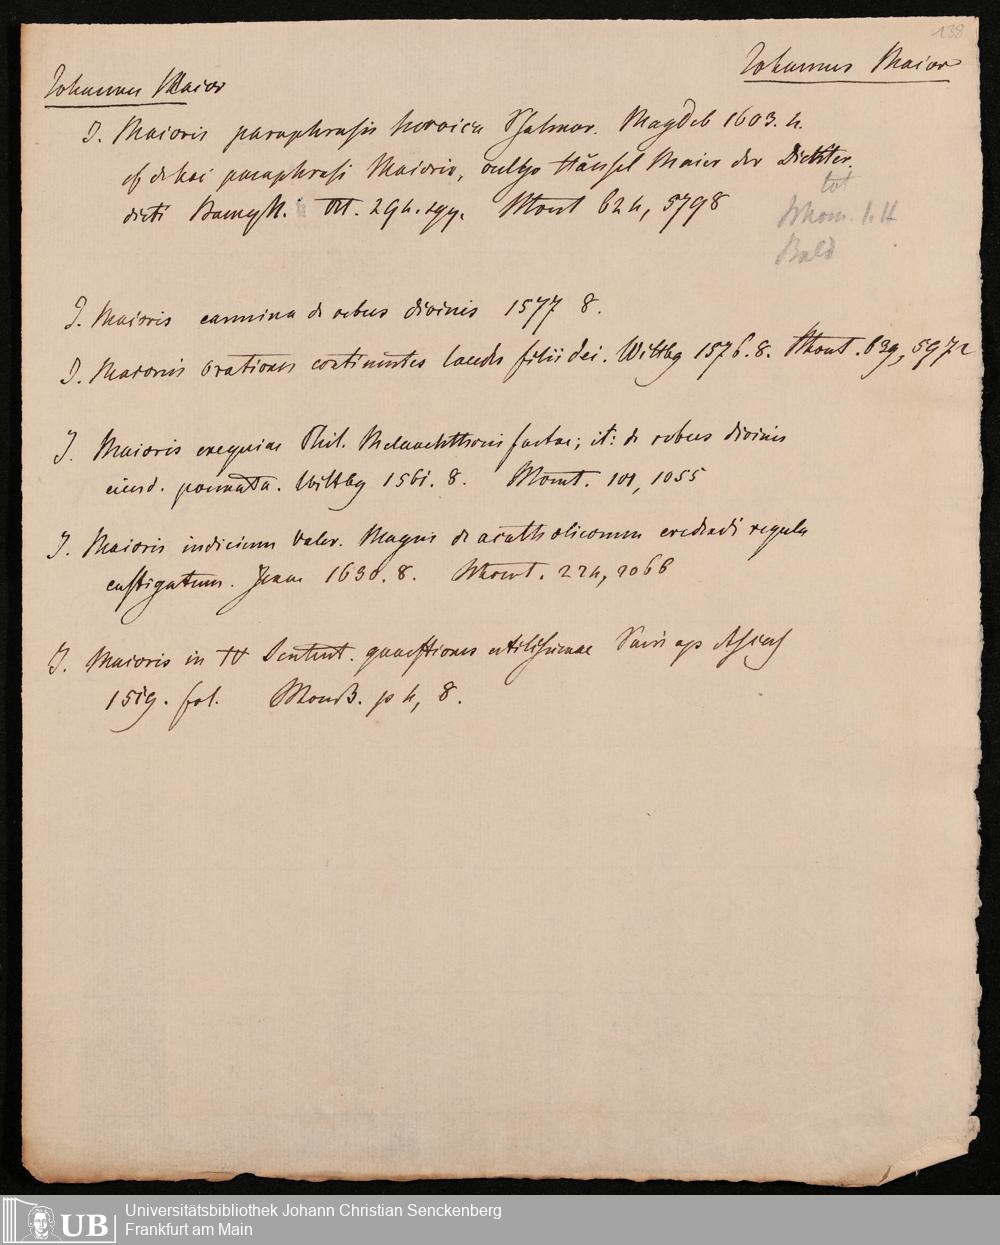 138
Johannes Maior
Johannes Maior
J. Maioris paraphrasis heroica Psalmor. Magdeb 1603. 4.
cf de hac paraphrasi Maioris, vulgo Hänsel Maier der Dichter
dicti Baumgtl. 294. sqq. Mont 624, 5798
tot
Bald
J. Maioris carmina de rebus divinis 1577 8.
J. Maioris orationes continentes laudes filii dei. Wittbg 1576. 8. Mont. 639, 5972
J. Maioris exequiae Phil. Melanchthonis factae; it: de rebus divinis
eiusd. poemata. Wittbg 1561. 8. Mont. 101, 1055
J. Maioris iudicium Valer. Magni de acatholicorum credendi regula
castigatum. Jenae 1630. 8. Mont. 224, 2066
J. Maioris in IV Sentent. quaestiones utilissimae Paris ap
1519. fol. p 4, 8.
UB
Universitätsbibliothek Johann Christian Senckenberg
Frankfurt am Main